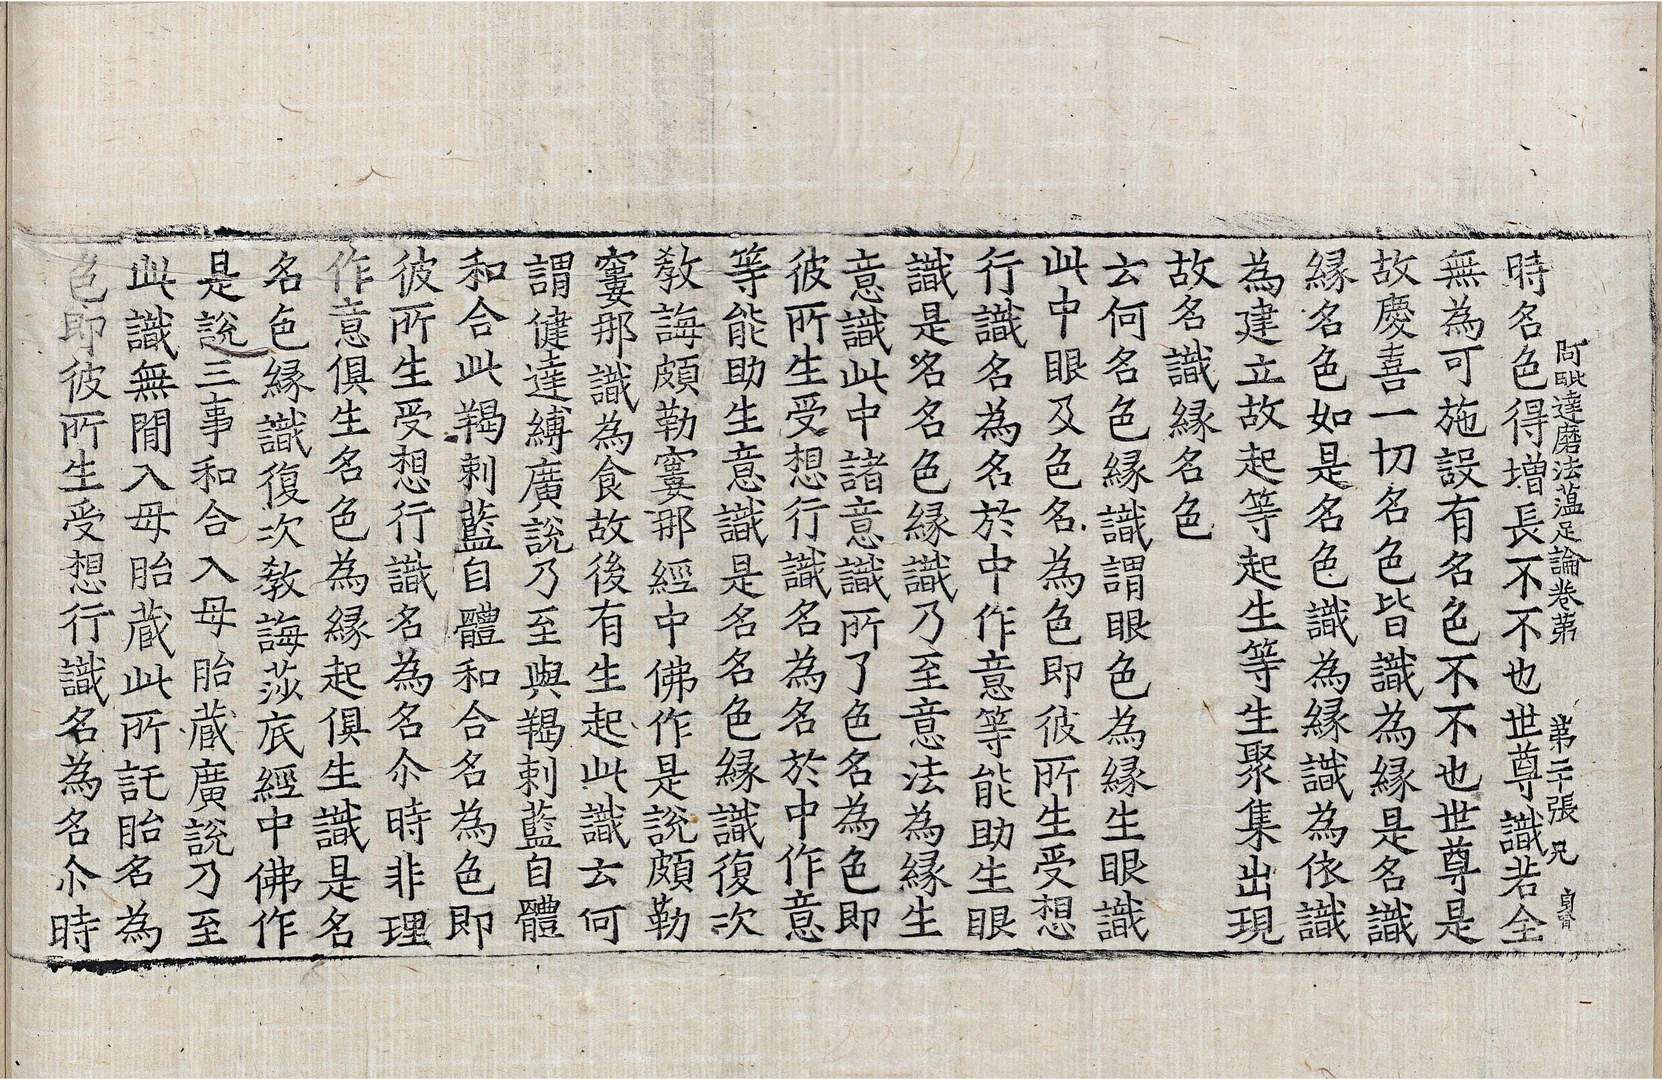 阿毗達磨法蕴足論卷苐　苐二十張　兄
時名色得增長不不也世尊識若全
無為可施設有名色不不也世尊是
故慶喜一切名色皆識為緣是名識
緣名色如是名色識為緣識為依識
為建立故起等起生等生聚集出現
故名識緣名色
云何名色緣識謂眼色為緣生眼識
此中眼及色名為色即彼所生受想
行識名為名於中作意等能助生眼
識是名名色緣識乃至意法為緣生
意識此中諸意識所了色名為色即
彼所生受想行識名為名於中作意
等能助生意識是名名色緣識復次
教誨頗勒窶那經中佛作是說頗勒
窶那識為食故後有生起此識云何
謂健達縛廣說乃至與羯剌藍自體
和合此羯剌藍自體和合名為色即
彼所生受想行識名為名尒時非理
作意俱生名色為緣起俱生識是名
名色緣識復次教誨莎底經中佛作
是說三事和合入母胎藏廣說乃至
此識無閒入母胎藏此所託胎名為
色即彼所生受想行識名為名尒時